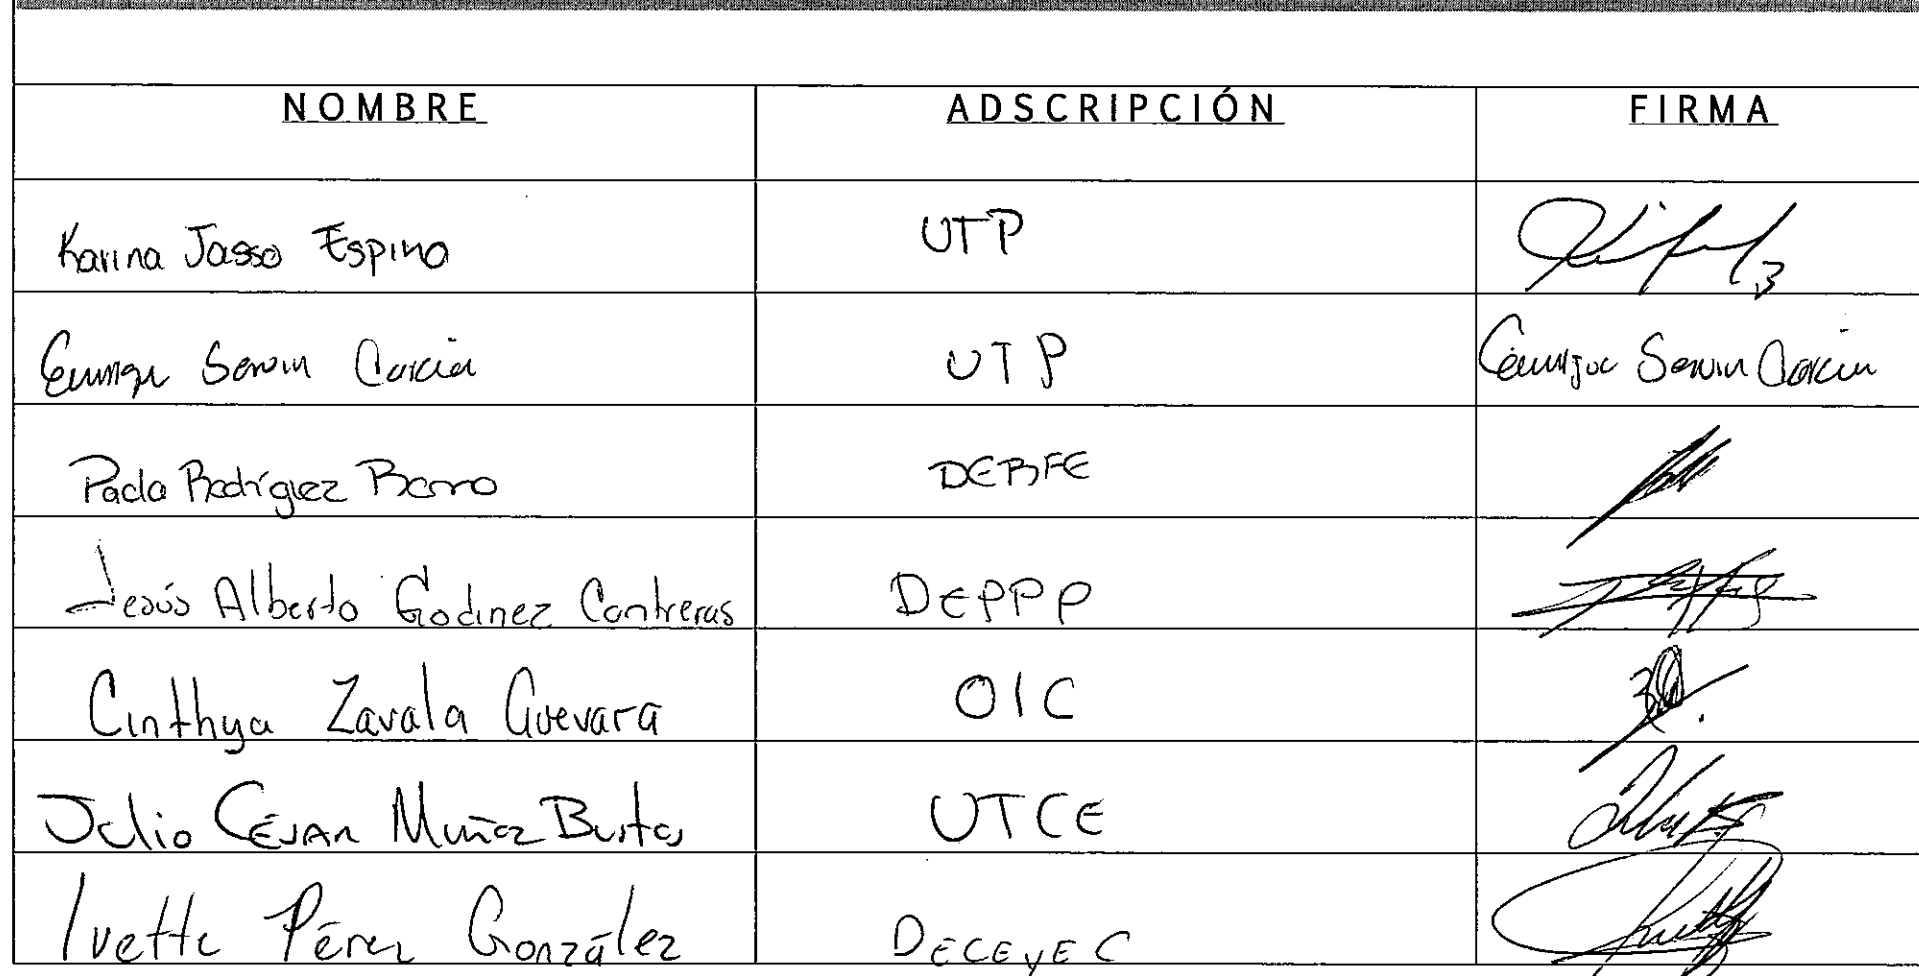 NOMBRE ADSCRIPCIÓN FIRMA
Karina Jasso Espino UTP
Servin Garcia UTP Servin Garcia
Paola Rodríguez Barro DERFE
Jesús Alberto Godinez Contreras DEPPP
Cinthya Zavala Guevara OIC
Julio CÉSAR Muñoz Bustos UTCE
Ivette Pérez González DECEyEC